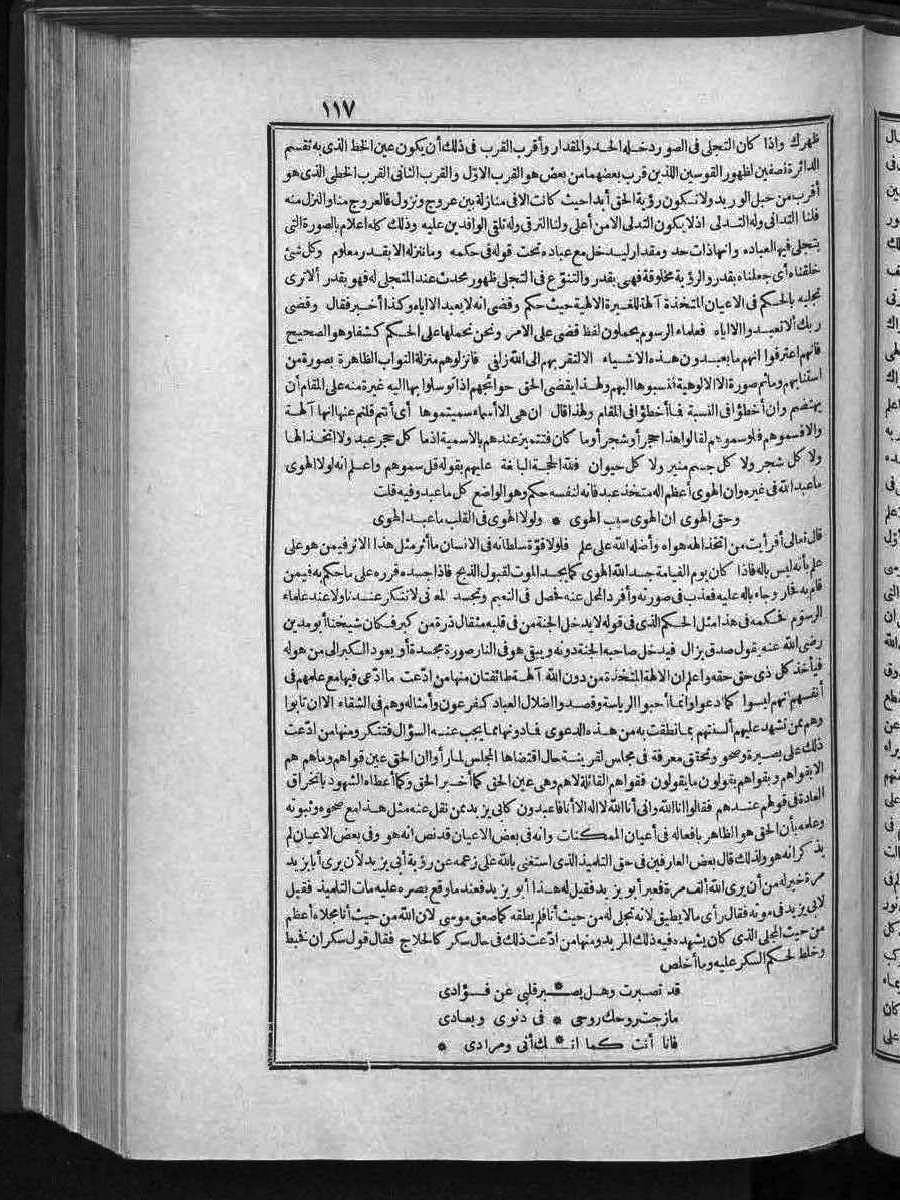 ١١٧
ظهرك واذا كان التجلى فى الصور دخله الحد والمقدار وأقرب القرب فى ذلك أن يكون عين الخط الذى به تقسم
الدائرة نصفين لظهور القوسين اللذين قرب بعضهما من بعض هو القرب الاوّل والقرب الثانى القرب الخطى الذى هو
أقرب من حبل الوريد ولا تكون رؤية الحق أبدا حيث كانت الا فى منازلة بين عروج ونزول فالعروج منا والنزول منه
فلنا التدانى وله التدلى اذ لا يكون التدلى الا من أعلى ولنا الترقى وله تلقى الوافدين عليه وذلك كله اعلام بالصورة التى
يتجلى فيها لعباده وانها ذات حد ومقدار ليدخل مع عباده تحت قوله فى حكمه وما ننزله الا بقدر معلوم وكل شئ
خلقناه أى جعلناه بقدر والرؤية مخلوقة فهى بقدر والتنوّع فى التجلى ظهور محدث عند المتجلى له فهو بقدر ألا ترى
تجليه بالحكم فى الاعيان المتخذة آلهة للغيرة الالهية حيث حكم وقضى انه لا يعبد الا اياه وكذا أخبر فقال وقضى
ربك ألا تعبدوا الا اياه فعلماء الرسوم يحملون لفظ قضى على الامر ونحن نحملها على الحكم كشفا وهو الصحيح
فانهم اعترفوا انهم ما يعبدون هذه الاشياء الا لتقربهم الى الله زلفى فانزلوهم منزلة النواب الظاهرة بصورة من
استنابهم وما ثم صورة الا الالوهية فنسبوها اليهم ولهذا يقضى الحق حوائجهم اذا توسلوا بها اليه غيرة منه على المقام أن
يهتضم وان أخطؤا فى النسبة فما أخطؤا فى المقام ولهذا قال ان هى الا أسماء سميتموها أى أنتم قلتم عنها انها آلهة
والا فسموهم فلو سموهم لقالوا هذا حجر أو شجر أو ما كان فتتميز عندهم بالاسمية اذ ما كل حجر عبد ولا اتخذ الها
ولا كل شجر ولا كل جسم منير ولا كل حيوان فلله الحجة البالغة عليهم بقوله قل سموهم واعلم انه لولا الهوى
ما عبد الله فى غيره وان الهوى أعظم اله متخذ عبد فانه لنفسه حكم وهو الواضع كل ما عبد وفيه قلت
وحق الهوى ان الهوى سبب الهوى * ولولا الهوى فى القلب ما عبد الهوى
قال تعالى أفرأيت من اتخذ الهه هواه وأضله الله على علم فلولا قوّة سلطانه فى الانسان ما أثر مثل هذا الاثر فيمن هو على
علم بأنه ليس باله فاذا كان يوم القيامة جسد الله الهوى كما يجسد الموت لقبول الذبح فاذا جسده قرره على ما حكم به فيمن
قام به فحار وجاء باله عليه فعذب فى صورته وأفرد المحل عنه فحصل فى النعيم وتجسد المعانى لا تنكر عندنا ولا عند علماء
الرسوم فحكمه فى هذا مثل الحكم الذى فى قوله لا يدخل الجنة من فى قلبه مثقال ذرة من كبر فكان شيخنا أبو مدين
رضى الله عنه يقول صدق يزال فيدخل صاحبه الجنة دونه ويبقى هو فى النار صورة مجسدة أو يعود الكبر الى من هو له
فيأخذ كل ذى حق حقه واعلم ان الآلهة المتخذة من دون الله آلهة طائفتان منها من ادّعت ما ادّعى فيها مع علمهم فى
أنفسهم انهم ليسوا كما ادعوا وانما أحبوا الرياسة وقصدوا اضلال العباد كفرعون وأمثاله وهم فى الشقاء الا ان تابوا
وهم ممن تشهد عليهم ألسنتهم بما نطقت به من هذه الدعوى فما دونها مما يجب عنه السؤال فتنكر ومنها من ادّعت
ذلك على بصيرة وصحو وتحقق معرفة فى مجالس لقرينة حال اقتضاها المجلس لما رأوا ان الحق عين قواهم وما هم هم
الا بقواهم وبقواهم يقولون ما يقولون فقواهم القائلة لا هم وهى عين الحق كما أخبر الحق وكما أعطاه الشهود بانخراق
العادة فى قولهم عندهم فقالوا انا الله وانى أنا الله لا اله الا أنا فاعبدون كابى يزيد ممن نقل عنه مثل هذا مع صحوه وثبوته
وعلمه بأن الحق هو الظاهر بافعاله فى أعيان الممكنات وانه فى بعض الاعيان قد نص انه هو وفى بعض الاعيان لم
يذكر انه هو ولذلك قال بعض العارفين فى حق التلميذ الذى استغنى بالله على زعمه عن رؤية أبى يزيد لأن يرى أبا يزيد
مرة خير له من أن يرى الله ألف مرة فعبر أبو يزيد فقيل له هذا أبو يزيد فعند ما وقع بصره عليه مات التلميذ فقيل
لابى يزيد فى موته فقال رأى ما لا يطيق لانه تجلى له من حيث أنا فلم يطقه كما صعق موسى لان الله من حيث أنا مجلاه أعظم
من حيث المجلى الذى كان يشهده فيه ذلك المريد ومنها من ادّعت ذلك فى حال سكر كالحلاج فقال قول سكران فخبط
وخلط لحكم السكر عليه وما أخلص
قد تصبرت وهل يصـ * ـبر قلبى عن فؤادى
مازجت روحك روحى * فى دنوى وبعادى
فانا أنت كما انـ * ـك أنى ومرادى *